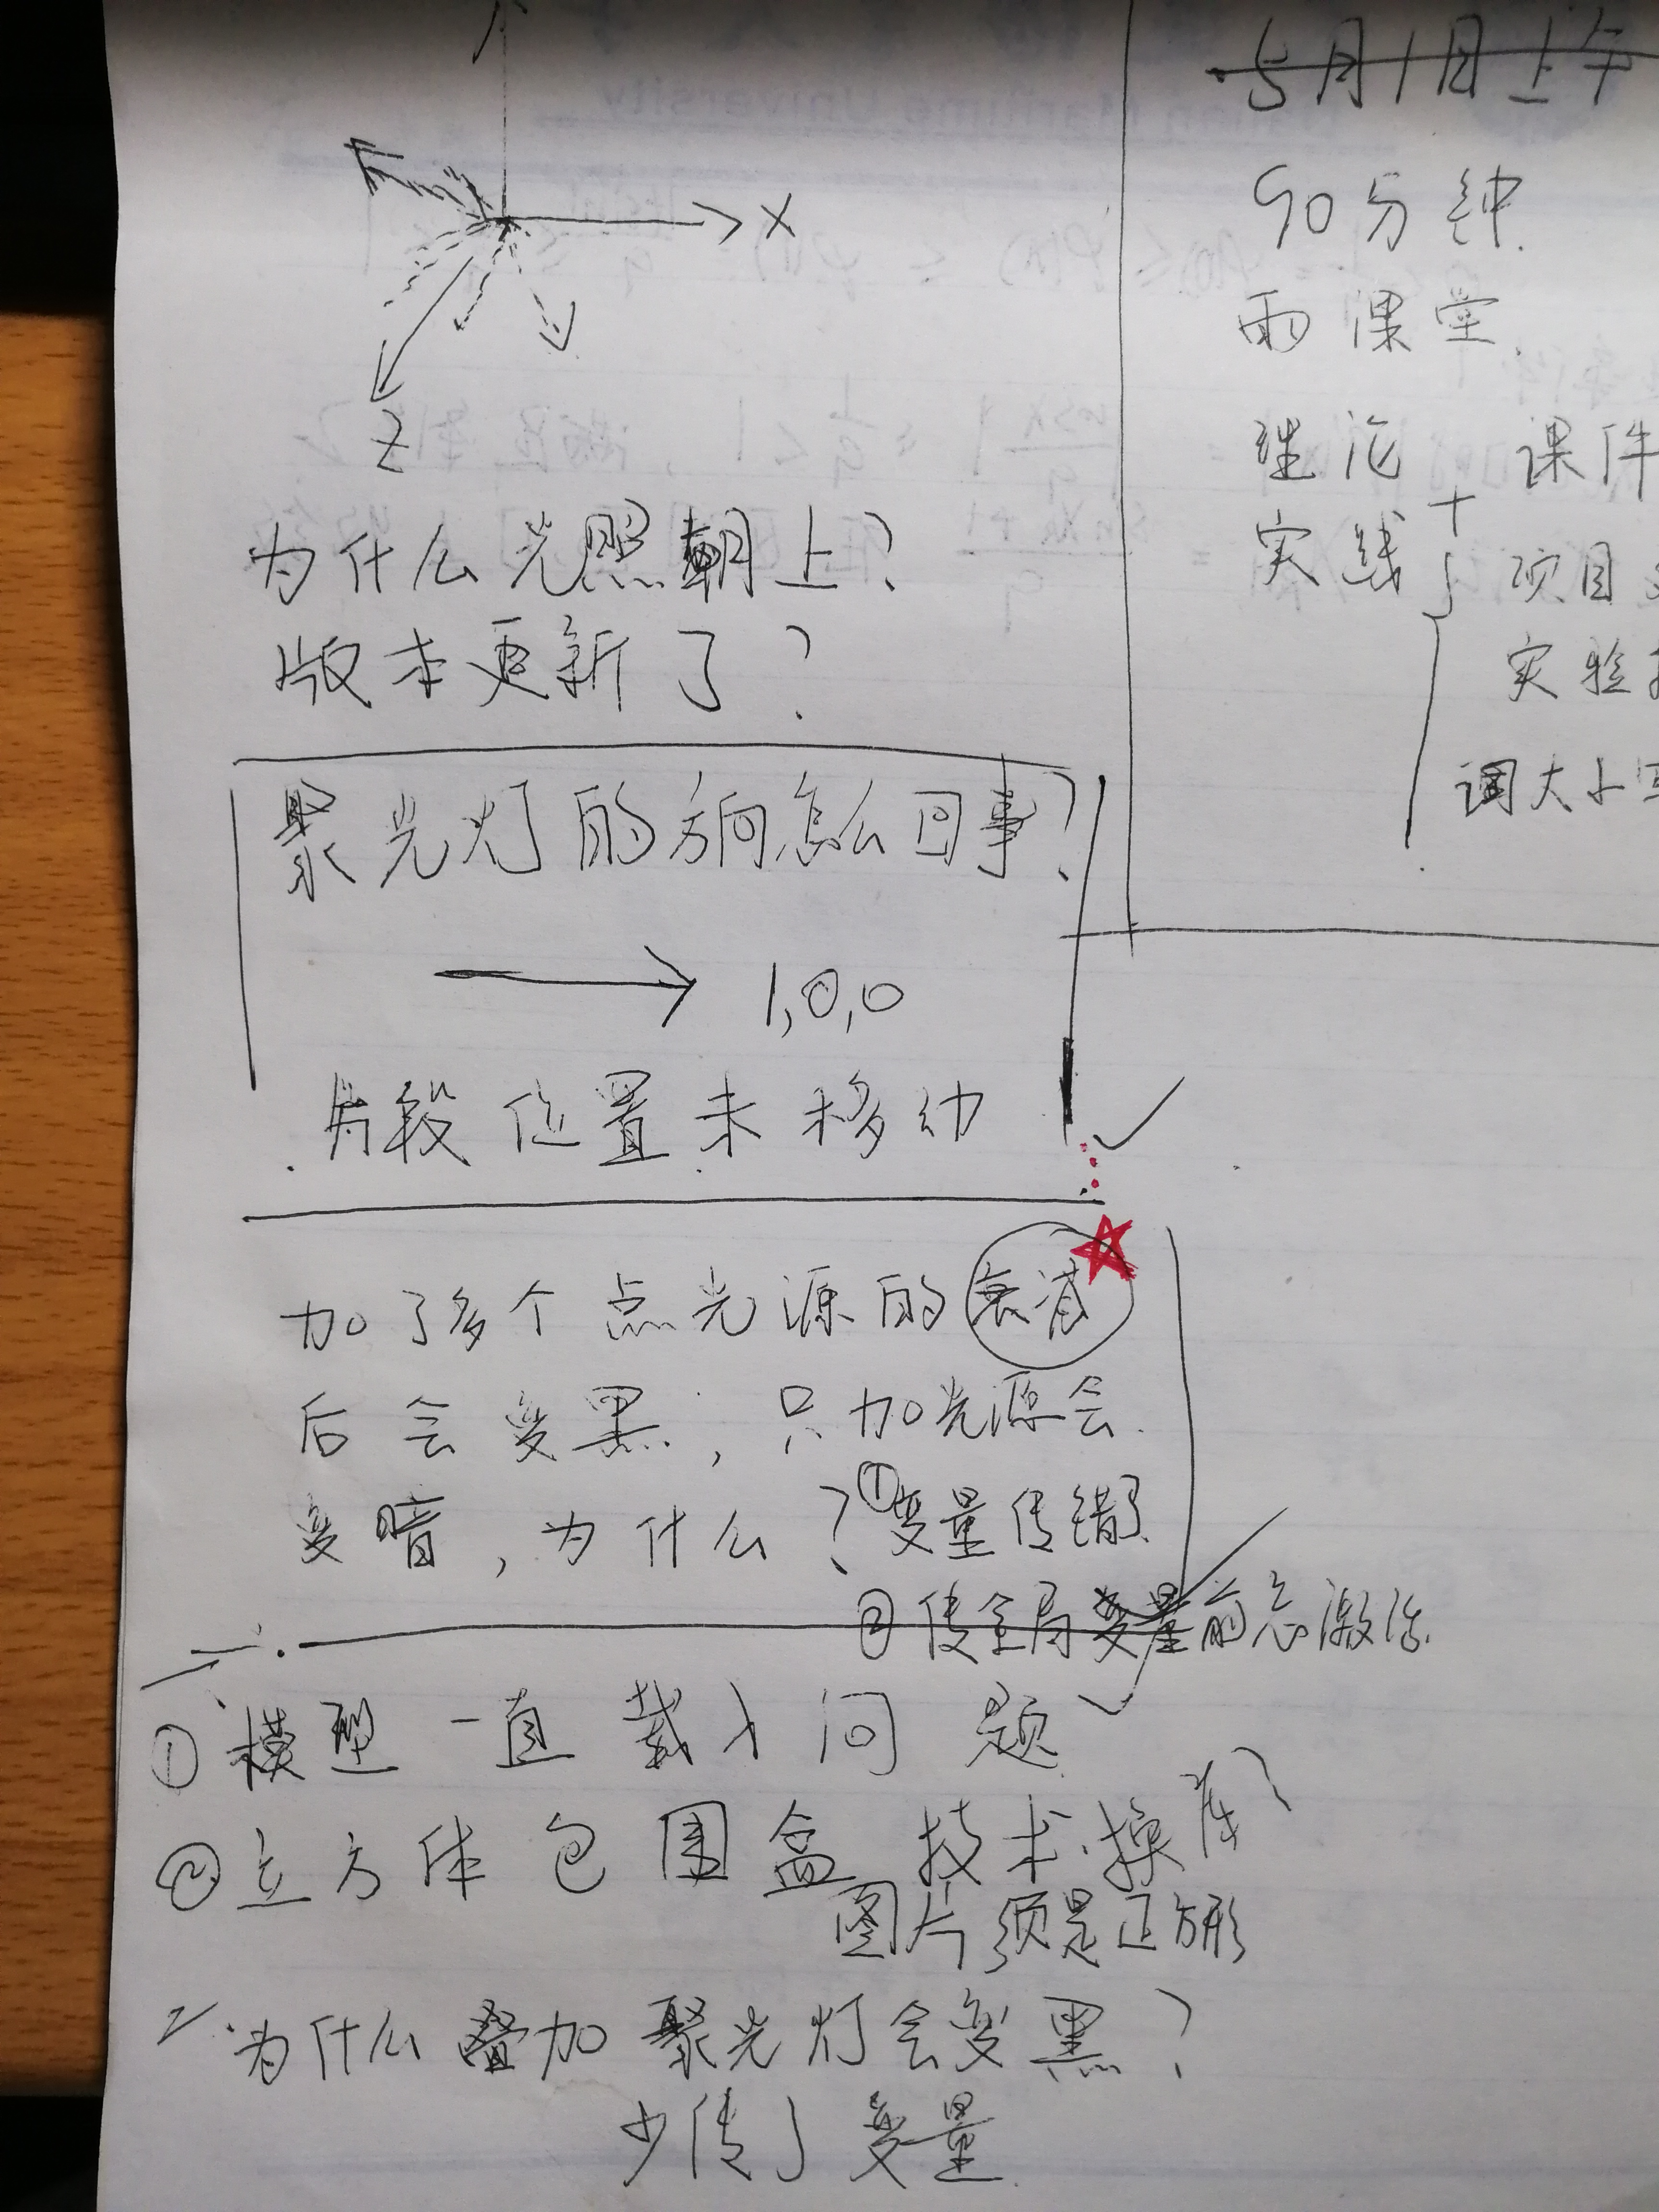 X
Z
为什么光照朝上?
版本更新了?
聚光灯的方向怎么回事?
1,0,0
片段位置未移动
加了多个点光源的衰减
后会变黑,只加光源会
变暗,为什么?①变量传错了
②传全局变量前忘激活
①模型一直载入问题
②立方体包围盒技术.换库?
图片须是正方形
为什么叠加聚光灯会变黑?
少传了变量
5月1日上午
90分钟
雨课堂
理论 课件
+
实践 项目
实验
调大小写